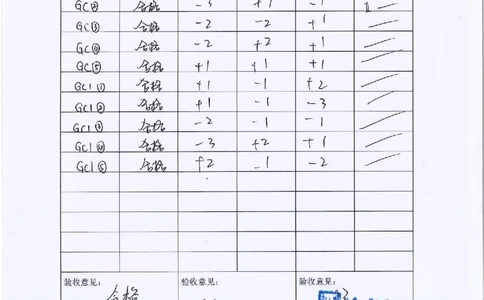 GC② 合格 -3 +1 -1
GC③ 合格 -2 -2 +1
GC④ 合格 -2 +2 +1
GC⑤ 合格 +1 +1 +1
GC1① 合格 +1 -1 +2
GC1② 合格 +1 -1 -3
GC1③ 合格 -2 -1 -1
GC1④ 合格 -3 +2 +1
GC1⑤ 合格 +2 -1 -2
验收意见: 验收意见: 验收意见:
合格